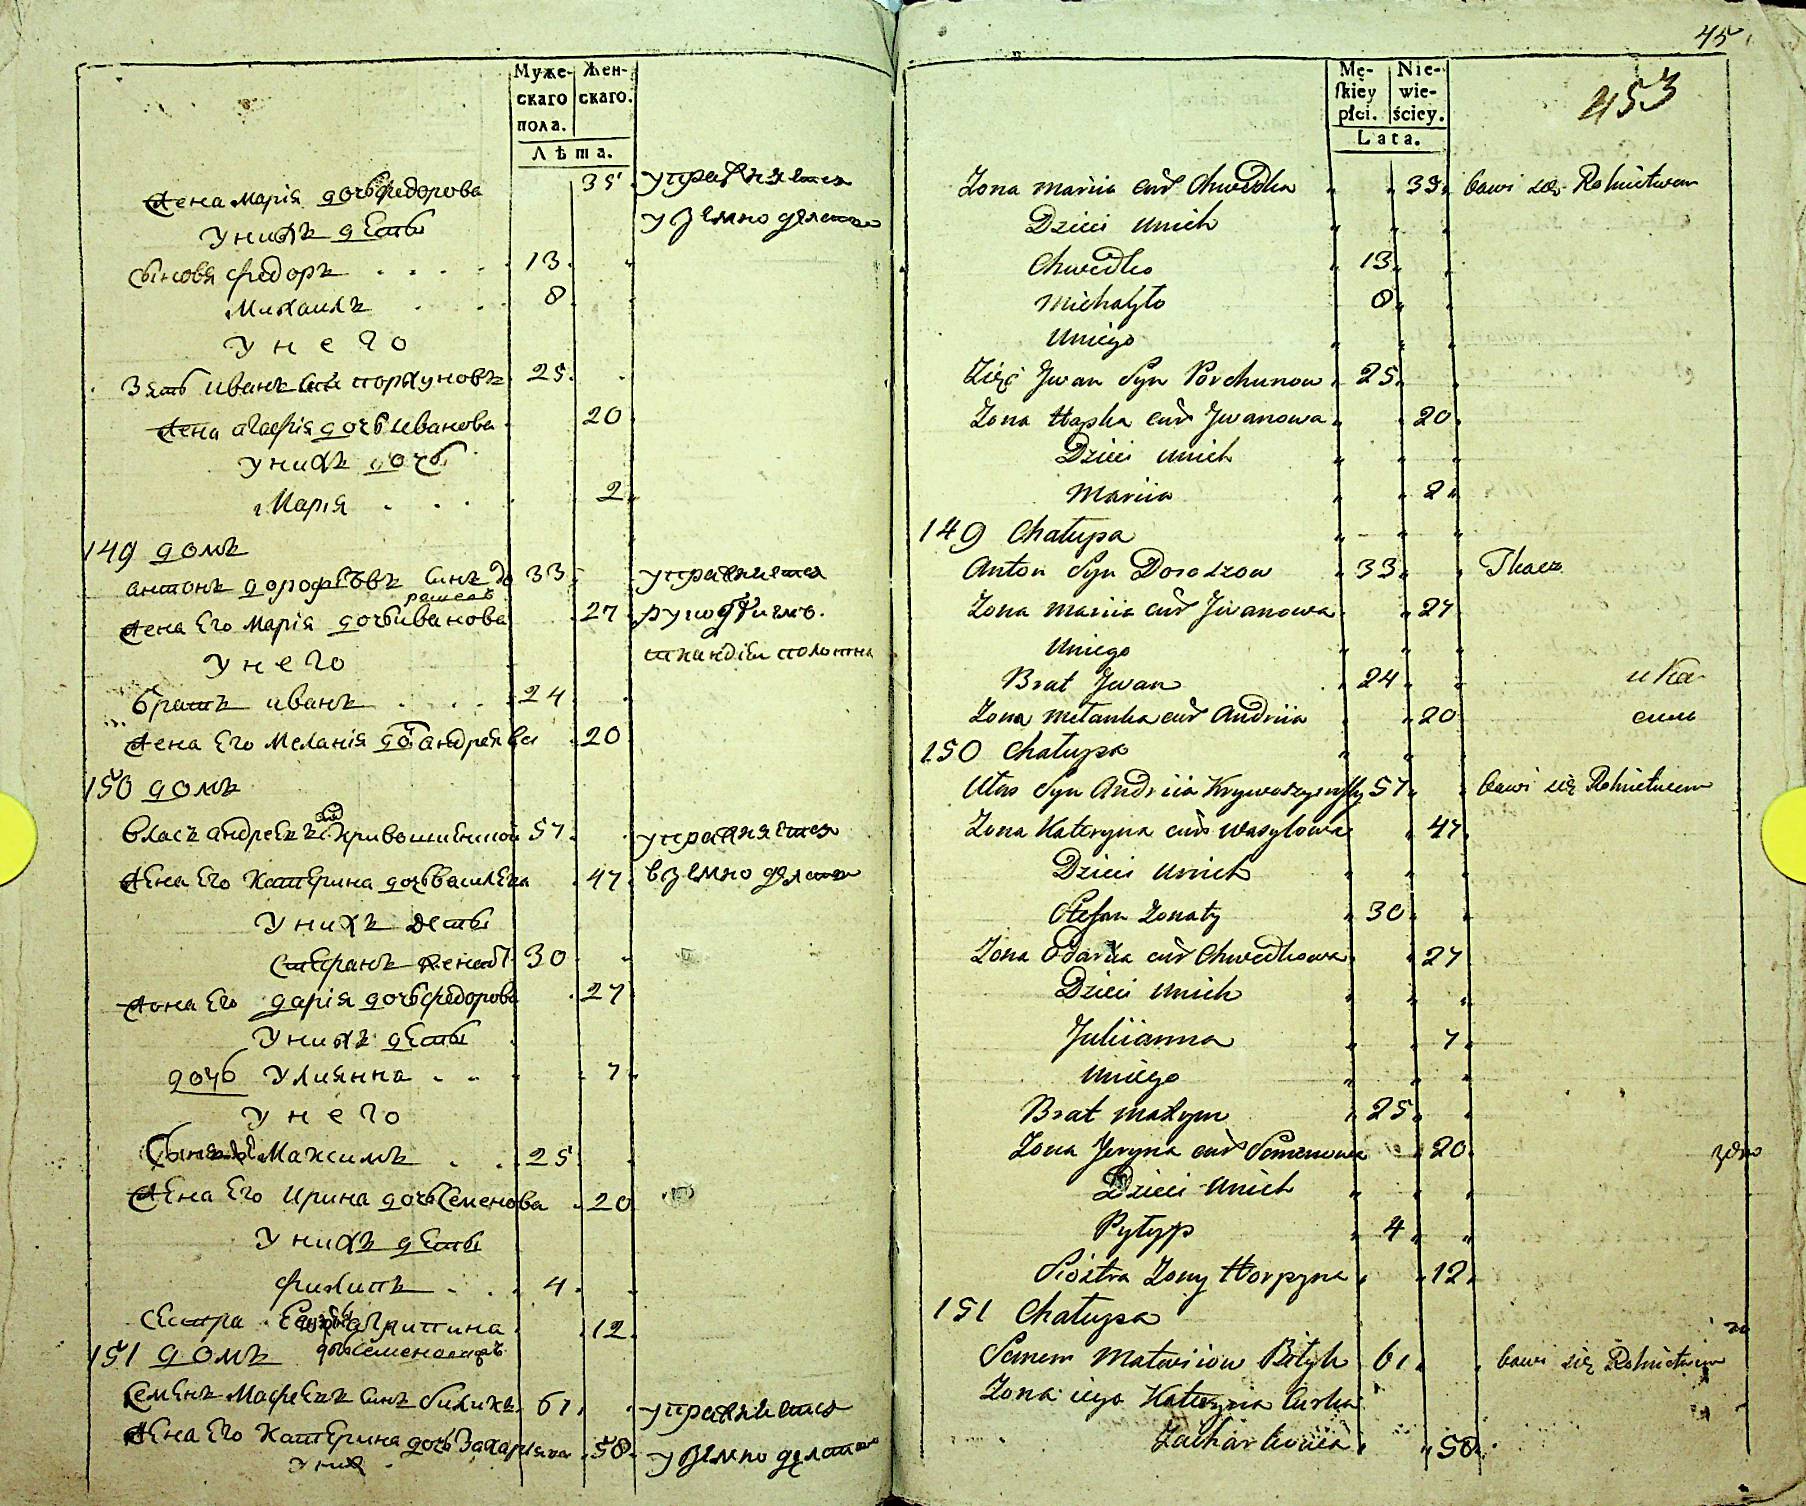 Муже- Жен-
скаго скаго.
пола.
Лѣта.
Жена Мария дочь федорова 35 управляется
у нихъ дети у земноделстве
сыновя федоръ 13
Михаилъ 8
у него
Зять иванъ сынъ порхуновъ 25
Жена агафия дочь иванова 20
у нихъ дочь
Мария 2
149 домъ
антонъ дорофѣевъ синъ 33 управляется
Жена Его Мария дочь иванова 27
у него полотна
братъ иванъ 24
Жена Его Мелания андреява 20
150 домъ
власъ андреевъ 57 управляется
Жена Его Катерина дочь василева 47 в земноделстве
у нихъ дети
Стефанъ женатъ 30
Жона Его дария дочь федорова 27
у нихъ дети
дочь Улиянна 7
у него
Максимъ 25
Жена Его Ирина дочь Семенова 20
у нихъ дети
филипъ 4
Сестра агрипина 12
151 домъ
Семенъ Матфеевъ синъ билыкъ 61 управляется
Жена Его Катерина дочь Захариява 50 у земноделстве
у них
45
453
Mę- Nie-
skiey wie-
płci. ściey.
Lata.
Zona Mariia cur Chwedka 35 bawi się Rolnictwem
Dzieci unich
Chwedko 13
Michayło 8
Uniego
Zięć Jwan Syn Porchunow 25
Zona Hapka cur Jwanowa 20
Dzieci unich
Mariia 2
149 Chałupa
Anton Syn Doroszow 33 Tkacz
Zona Mariia cur Jwanowa 27
Uniego
Brat Jwan 24
Zona Mełanka cur Andriia 20
150 Chałupa
Ułas Syn Andriia 57 bawi się Rolnictwem
Zona Kateryna cur Wasylowa 47
Dzieci unich
Stefan Zonaty 30
Zona Odarka cur Chwedkowa 27
Dzieci unich
Juliianna 7
Uniego
Brat Maxym 25
Zona Jeryna cur Semenowa 20
Dzieci unich
Pyłyp 4
Siostra Zony Horpyna 12
151 Chałupa
Semen Matwiiow Biłyk 61 bawi się Rolnictwem
Zona iego Kateryna Curka
50